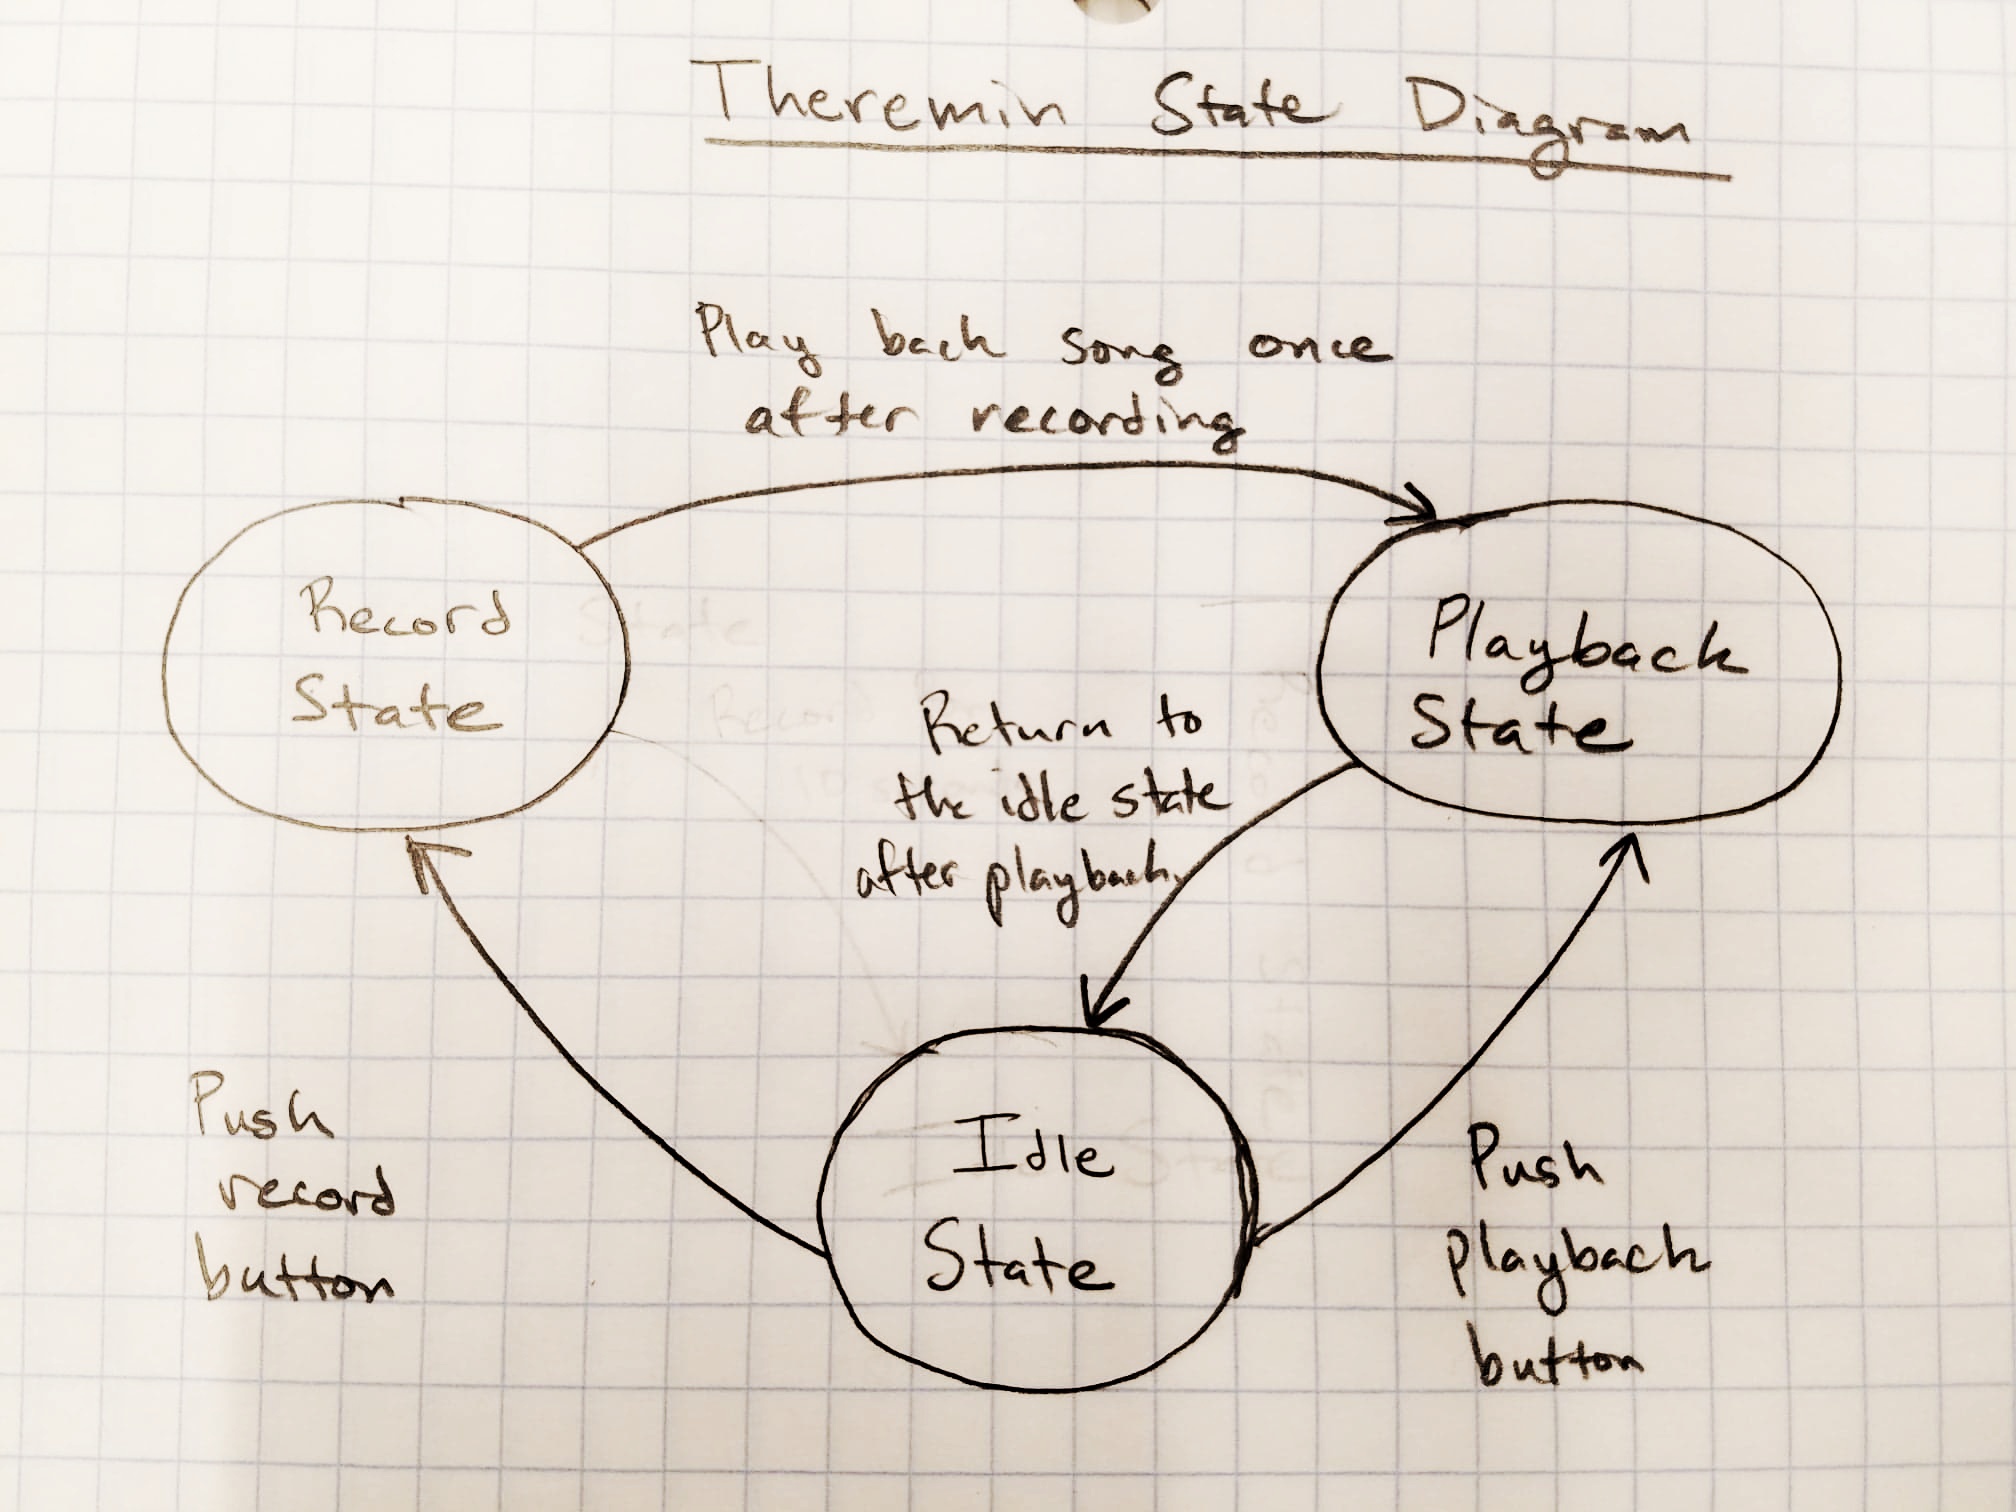 Theremin State Diagram
Play back song once
after recording
Record
State
Playback
State
Return to
the idle state
after playback
Idle
State
Push
record
button
Push
playback
button